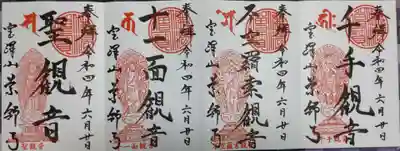 奉拝 令和四年六月廿日
千手観音
澤山 薬師寺
奉拝 令和四年六月廿日
不空羂索観音
澤山 薬師寺
奉拝 令和四年六月廿日
十一面観音
澤山 薬師寺
奉拝 令和四年六月廿日
聖観音
澤山 薬師寺
聖観音